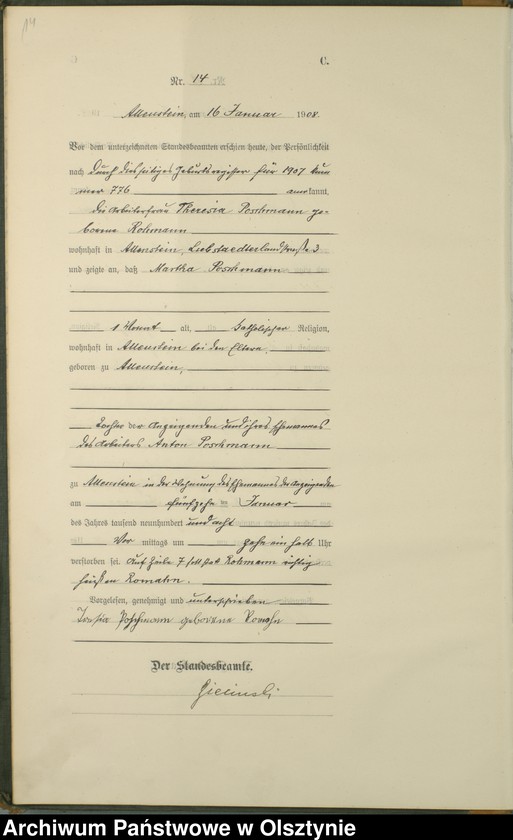 14
C.
Nr. 14
Allenstein, am 16 Januar 1908.
Vor dem unterzeichneten Standesbeamten erschien heute, der Persönlichkeit
nach durch diesseitiges Geburtsregister für 1907 Num
mer 776 anerkannt,
die Arbeiterfrau Theresia Poschmann ge-
borene Rohmann
wohnhaft in Allenstein, Liebstaedterlandstraße 3
und zeigte an, daß Martha Poschmann
1 Monat alt, katholischer Religion,
wohnhaft in Allenstein bei den Eltern,
geboren zu Allenstein,
Tochter der Anzeigenden und ihres Ehemannes
des Arbeiters Anton Poschmann
zu Allenstein in der Wohnung des Ehemannes der Anzeigenden
am fünfzehn ten Januar
des Jahres tausend neunhundert und acht
Vor mittags um zehn ein halb Uhr
verstorben sei. Auf Zeile 7 soll statt Rohmann richtig
heißen Romahn.
Vorgelesen, genehmigt und unterschrieben
Poschmann geborene Romahn
Der Standesbeamte.
Archiwum Państwowe w Olsztynie